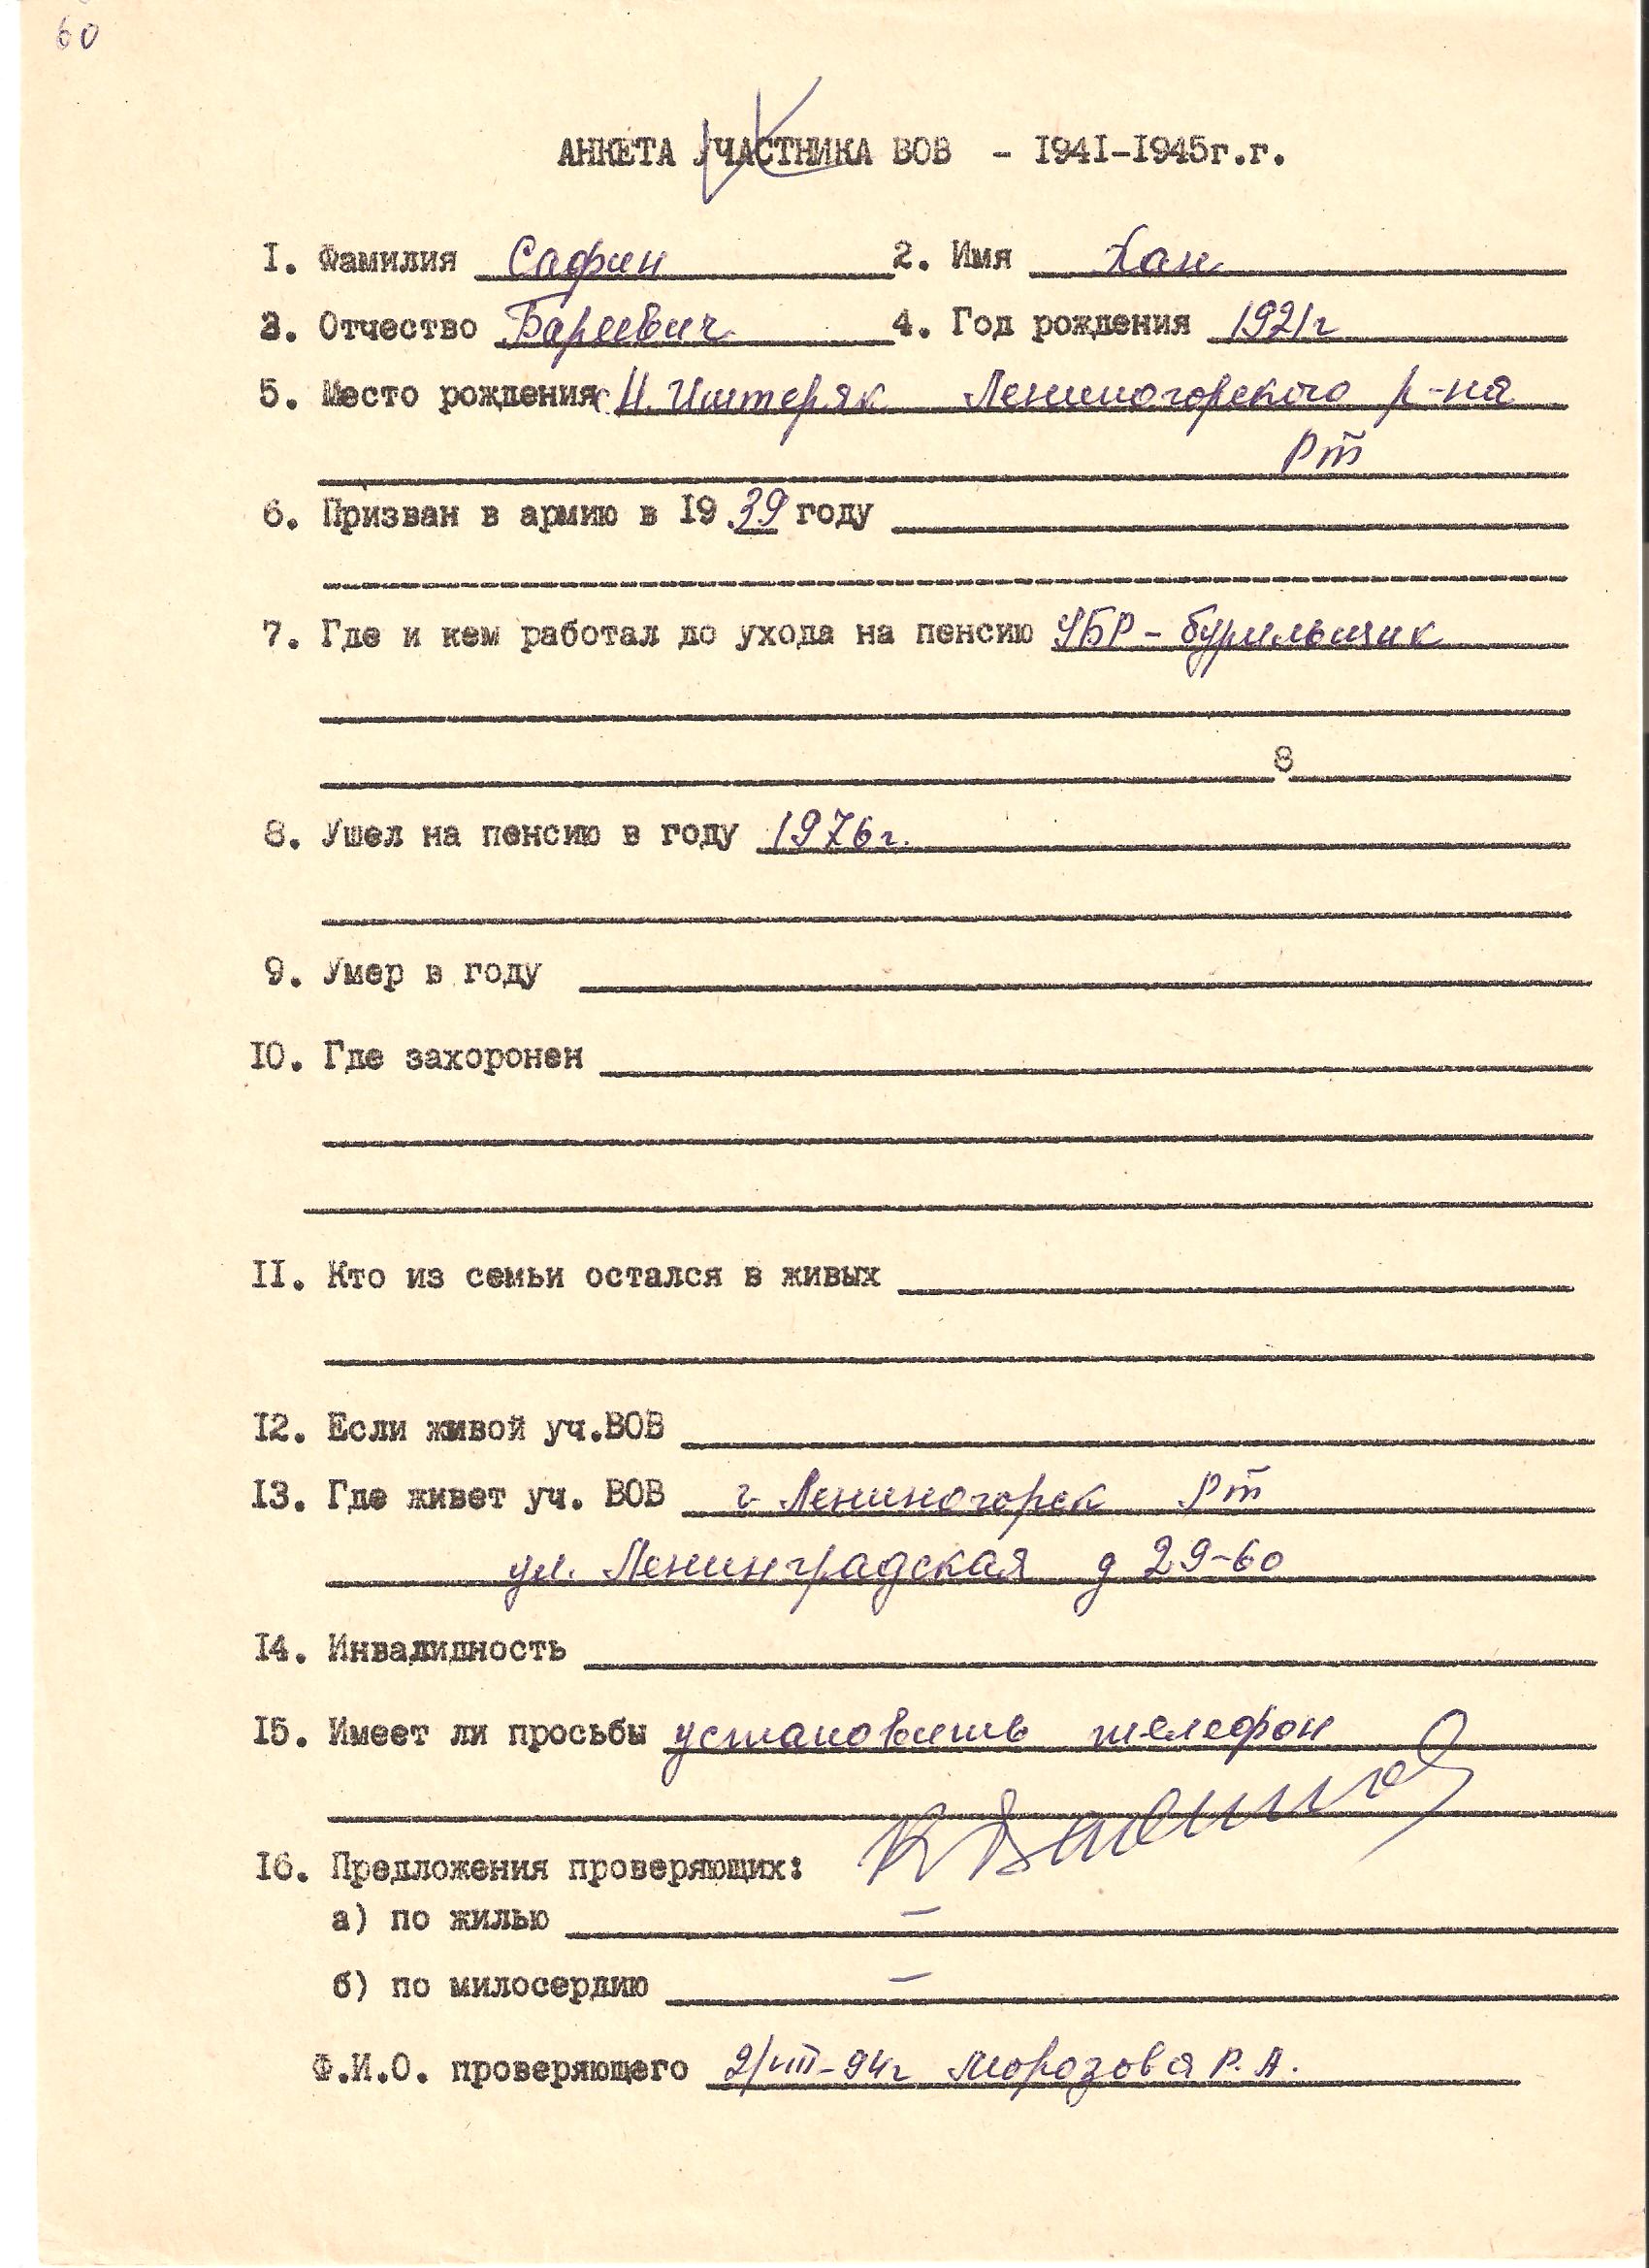 60
АНКЕТА УЧАСТНИКА ВОВ - 1941-1945г.г.
1. Фамилия Сафин 2. Имя Хан
3. Отчество Бареевич 4. Год рождения 1921г
5. Место рождения с Н. Иштеряк Лениногорского р-на
РТ
6. Призван в армию в 19.39 году
7. Где и кем работал до ухода на пенсию УБР - бурильщик
8
8. Ушел на пенсию в году 1976г.
9. Умер в году
10. Где захоронен
11. Кто из семьи остался в живых
12. Если живой уч.ВОВ
13. Где живет уч. ВОВ г. Лениногорск РТ
ул. Ленинградская д 29-60
14. Инвалидность
15. Имеет ли просьбы установить телефон
16. Предложения проверяющих:
а) по жилью –
б) по милосердию –
Ф.И.О. проверяющего 2/VIII-94г Морозова Р.А.